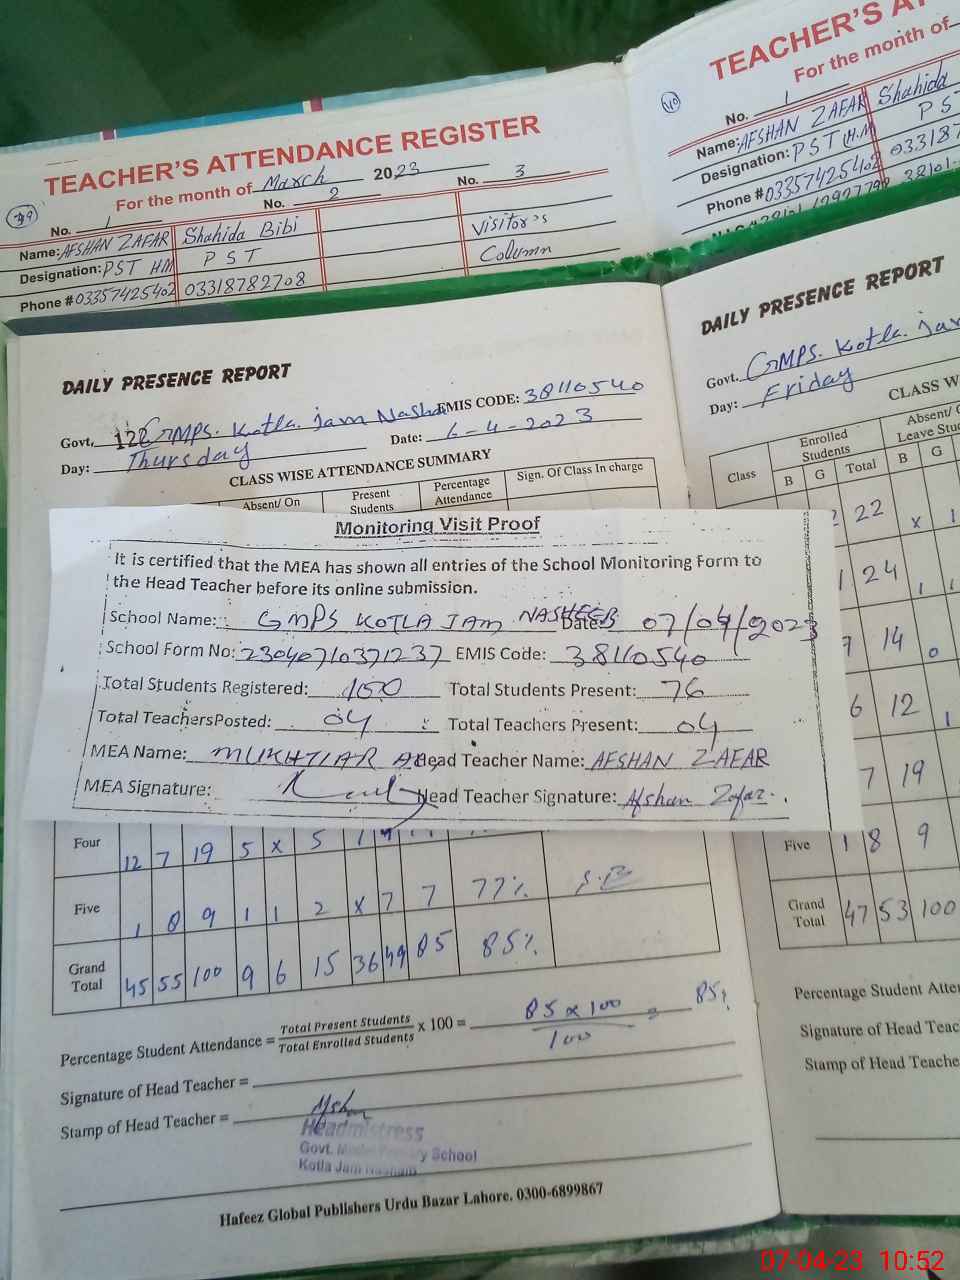 TEACHER'S ATTENDANCE REGISTER
For the month of March 2023
No. 1 No. 2 No. 3
Name: AFSHAN ZAFAR Shahida Bibi Visitor's
Designation: PST HM PST Column
Phone # 03357425402 03318782708
TEACHER'S AT
For the month of
No. 1
Name: AFSHAN ZAFAR Shahida
Designation: PST (H.M PS
Phone # 03357425402 03318
DAILY PRESENCE REPORT
Govt. GMPS. Kotla Jam EMIS CODE: 38110540
Day: Thursday Date: 6-4-2023
CLASS WISE ATTENDANCE SUMMARY
Absent/ On Present Students Percentage Attendance Sign. Of Class In charge
DAILY PRESENCE REPORT
Govt. GMPS. Kotla Jam
Day: Friday
CLASS W
Class Enrolled Students Absent/ Leave Stu
B G Total B G
22 x 1
1 24 1 1
7 14 0
6 12 1
7 19
Five 1 8 9
Grand Total 47 53 100
Percentage Student Atte
Signature of Head Teac
Stamp of Head Teache
Monitoring Visit Proof
It is certified that the MEA has shown all entries of the School Monitoring Form to
the Head Teacher before its online submission.
School Name: GMPS KOTLA JAM NASHEEB Date: 07/04/2023
School Form No: 23040710371237 EMIS Code: 38110540
Total Students Registered: 100 Total Students Present: 76
Total TeachersPosted: 04 Total Teachers Present: 04
MEA Name: MUKHTIAR Head Teacher Name: AFSHAN ZAFAR
MEA Signature: Head Teacher Signature: Afshan Zafar.
Four 12 7 19 5 x 5
Five 1 8 9 1 1 2 x 7 7 77% S.B
Grand Total 45 55 100 9 6 15 36 49 85 85%
Percentage Student Attendance = Total Present Students / Total Enrolled Students x 100 = 85 x 100 / 100 = 85%
Signature of Head Teacher =
Stamp of Head Teacher =
Headmistress
Govt. Model Primary School
Kotla Jam
Hafeez Global Publishers Urdu Bazar Lahore. 0300-6899867
07-04-23 10:52